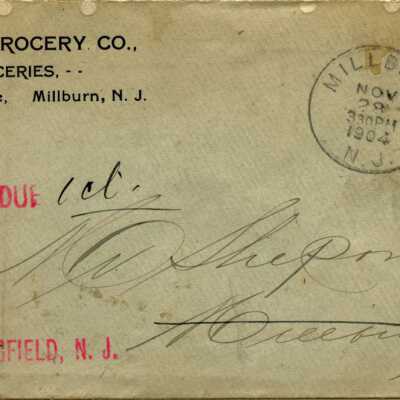 ROCERY CO.,
CERIES, - -
Millburn, N. J.
MILLB
NOV
28
330PM
1904
N. J.
DUE 1ct.
Mr Shepor
Millbu
GFIELD, N. J.